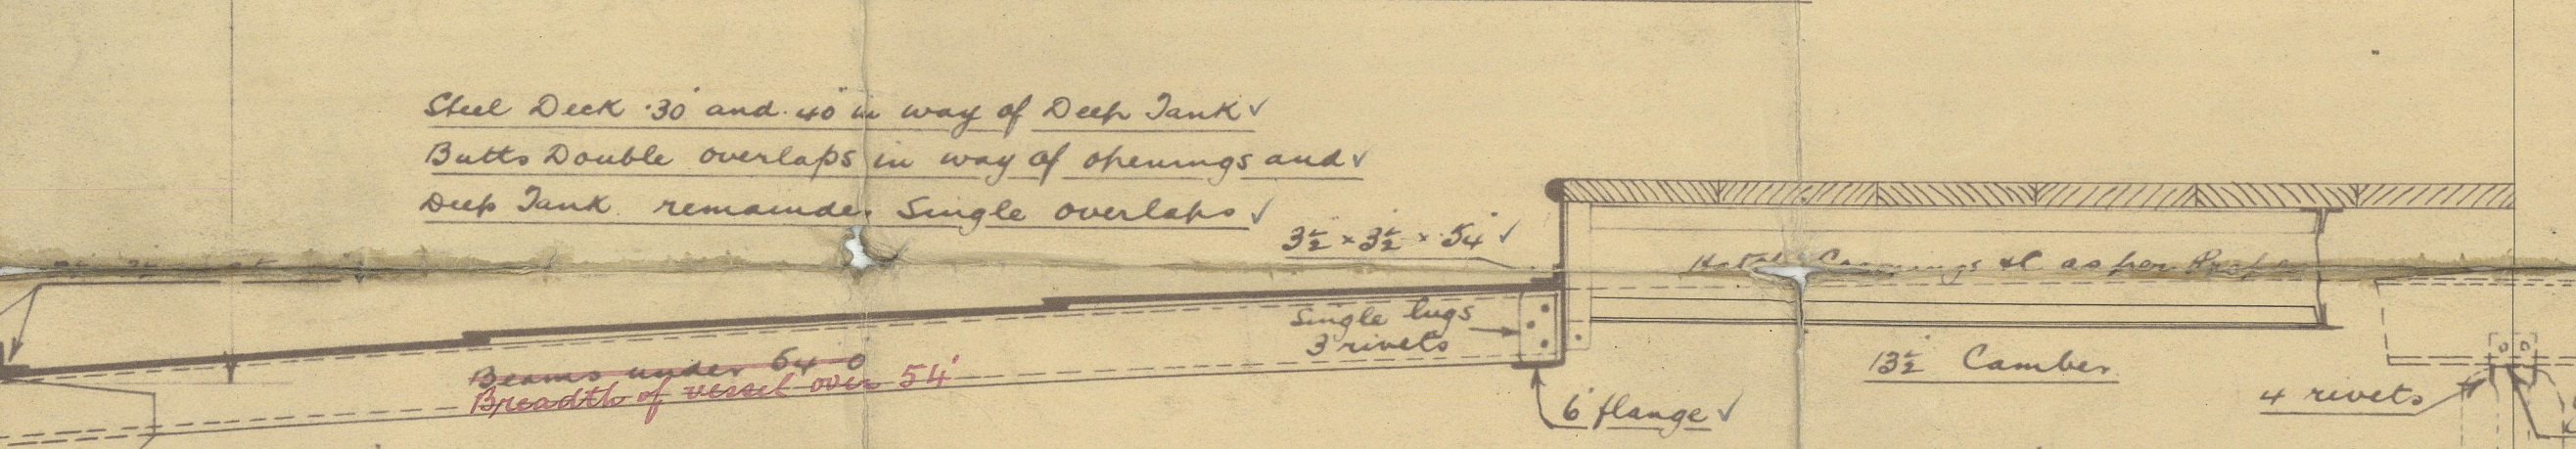 Steel Deck ·30" and ·40" in way of Deep Tank ✓
Butts Double overlaps in way of openings and ✓
Deep Tank remainder Single overlaps ✓
3½ × 3½ × ·54" ✓
Hatch Coamings &c as per
Single lugs
3 rivets
Beams under 54'0
Breadth of vessel over 54'
13½ Camber
6" flange ✓
4 rivets